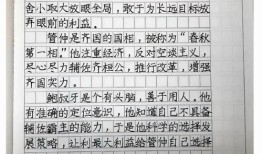 舍小取大放眼全局，敢于为长远目标放
弃眼前的利益。
管仲是齐国的国相，被称为“春秋
第一相。”他注重经济，反对空谈主义，
尽心尽力辅佐齐桓公，推行改革，增强
齐国实力。
鲍叔牙是个有头脑，善于用人。他
有准确的定位意识，他知道自己不具备
辅佐霸主的能力，于是他科学的选择发
展策略，让利最大利益给管仲自己选择